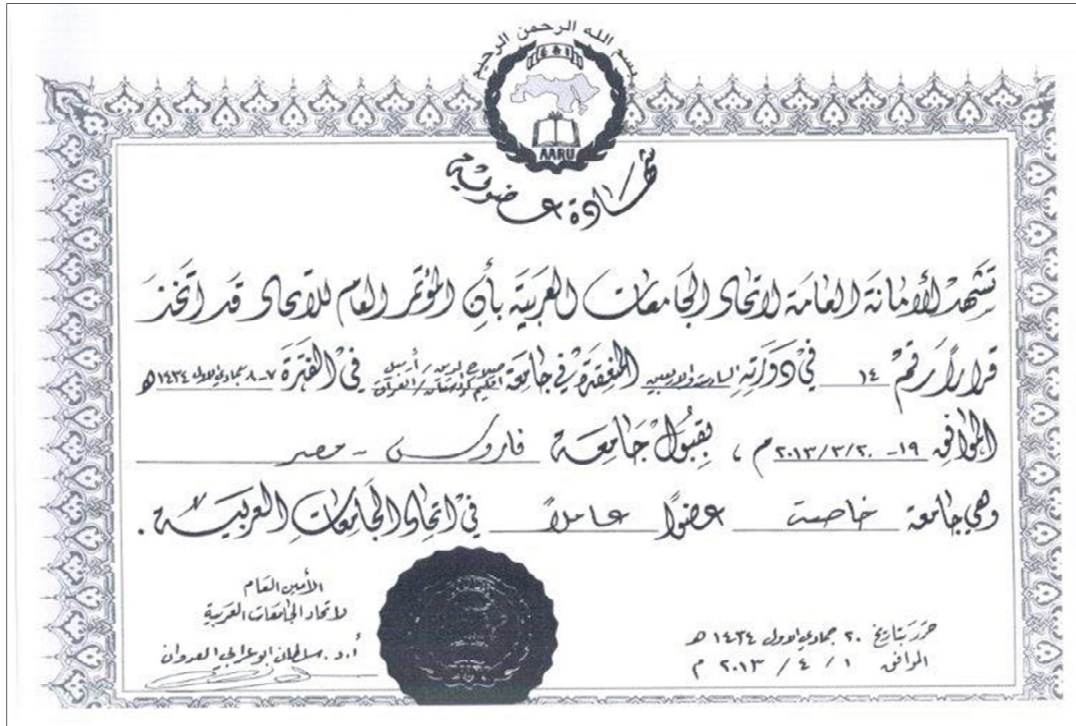 بسم الله الرحمن الرحيم
AARU
شهادة عضوية
تشهد الأمانة العامة لاتحاد الجامعات العربية بأن المؤتمر العام للاتحاد قد اتخذ
قراراً رقم ١٤ في دورته السادسة والاربعين المنعقدة في جامعة صلاح الدين / أربيل اقليم كردستان / العراق في الفترة ٧-٨ جمادي الاولى ١٤٣٤ هـ
الموافق ١٩-٢٠١٣/٣/٢٠ م ، بقبول جامعة فاروس - مصر
وهي جامعة خاصة عضواً عاملاً في اتحاد الجامعات العربية .
الأمين العام
لاتحاد الجامعات العربية
أ.د. سلطان ابو عرابي العدوان
حرر بتاريخ ٢٠ جمادي الاول ١٤٣٤ هـ
الموافق ١ / ٤ / ٢٠١٣ م